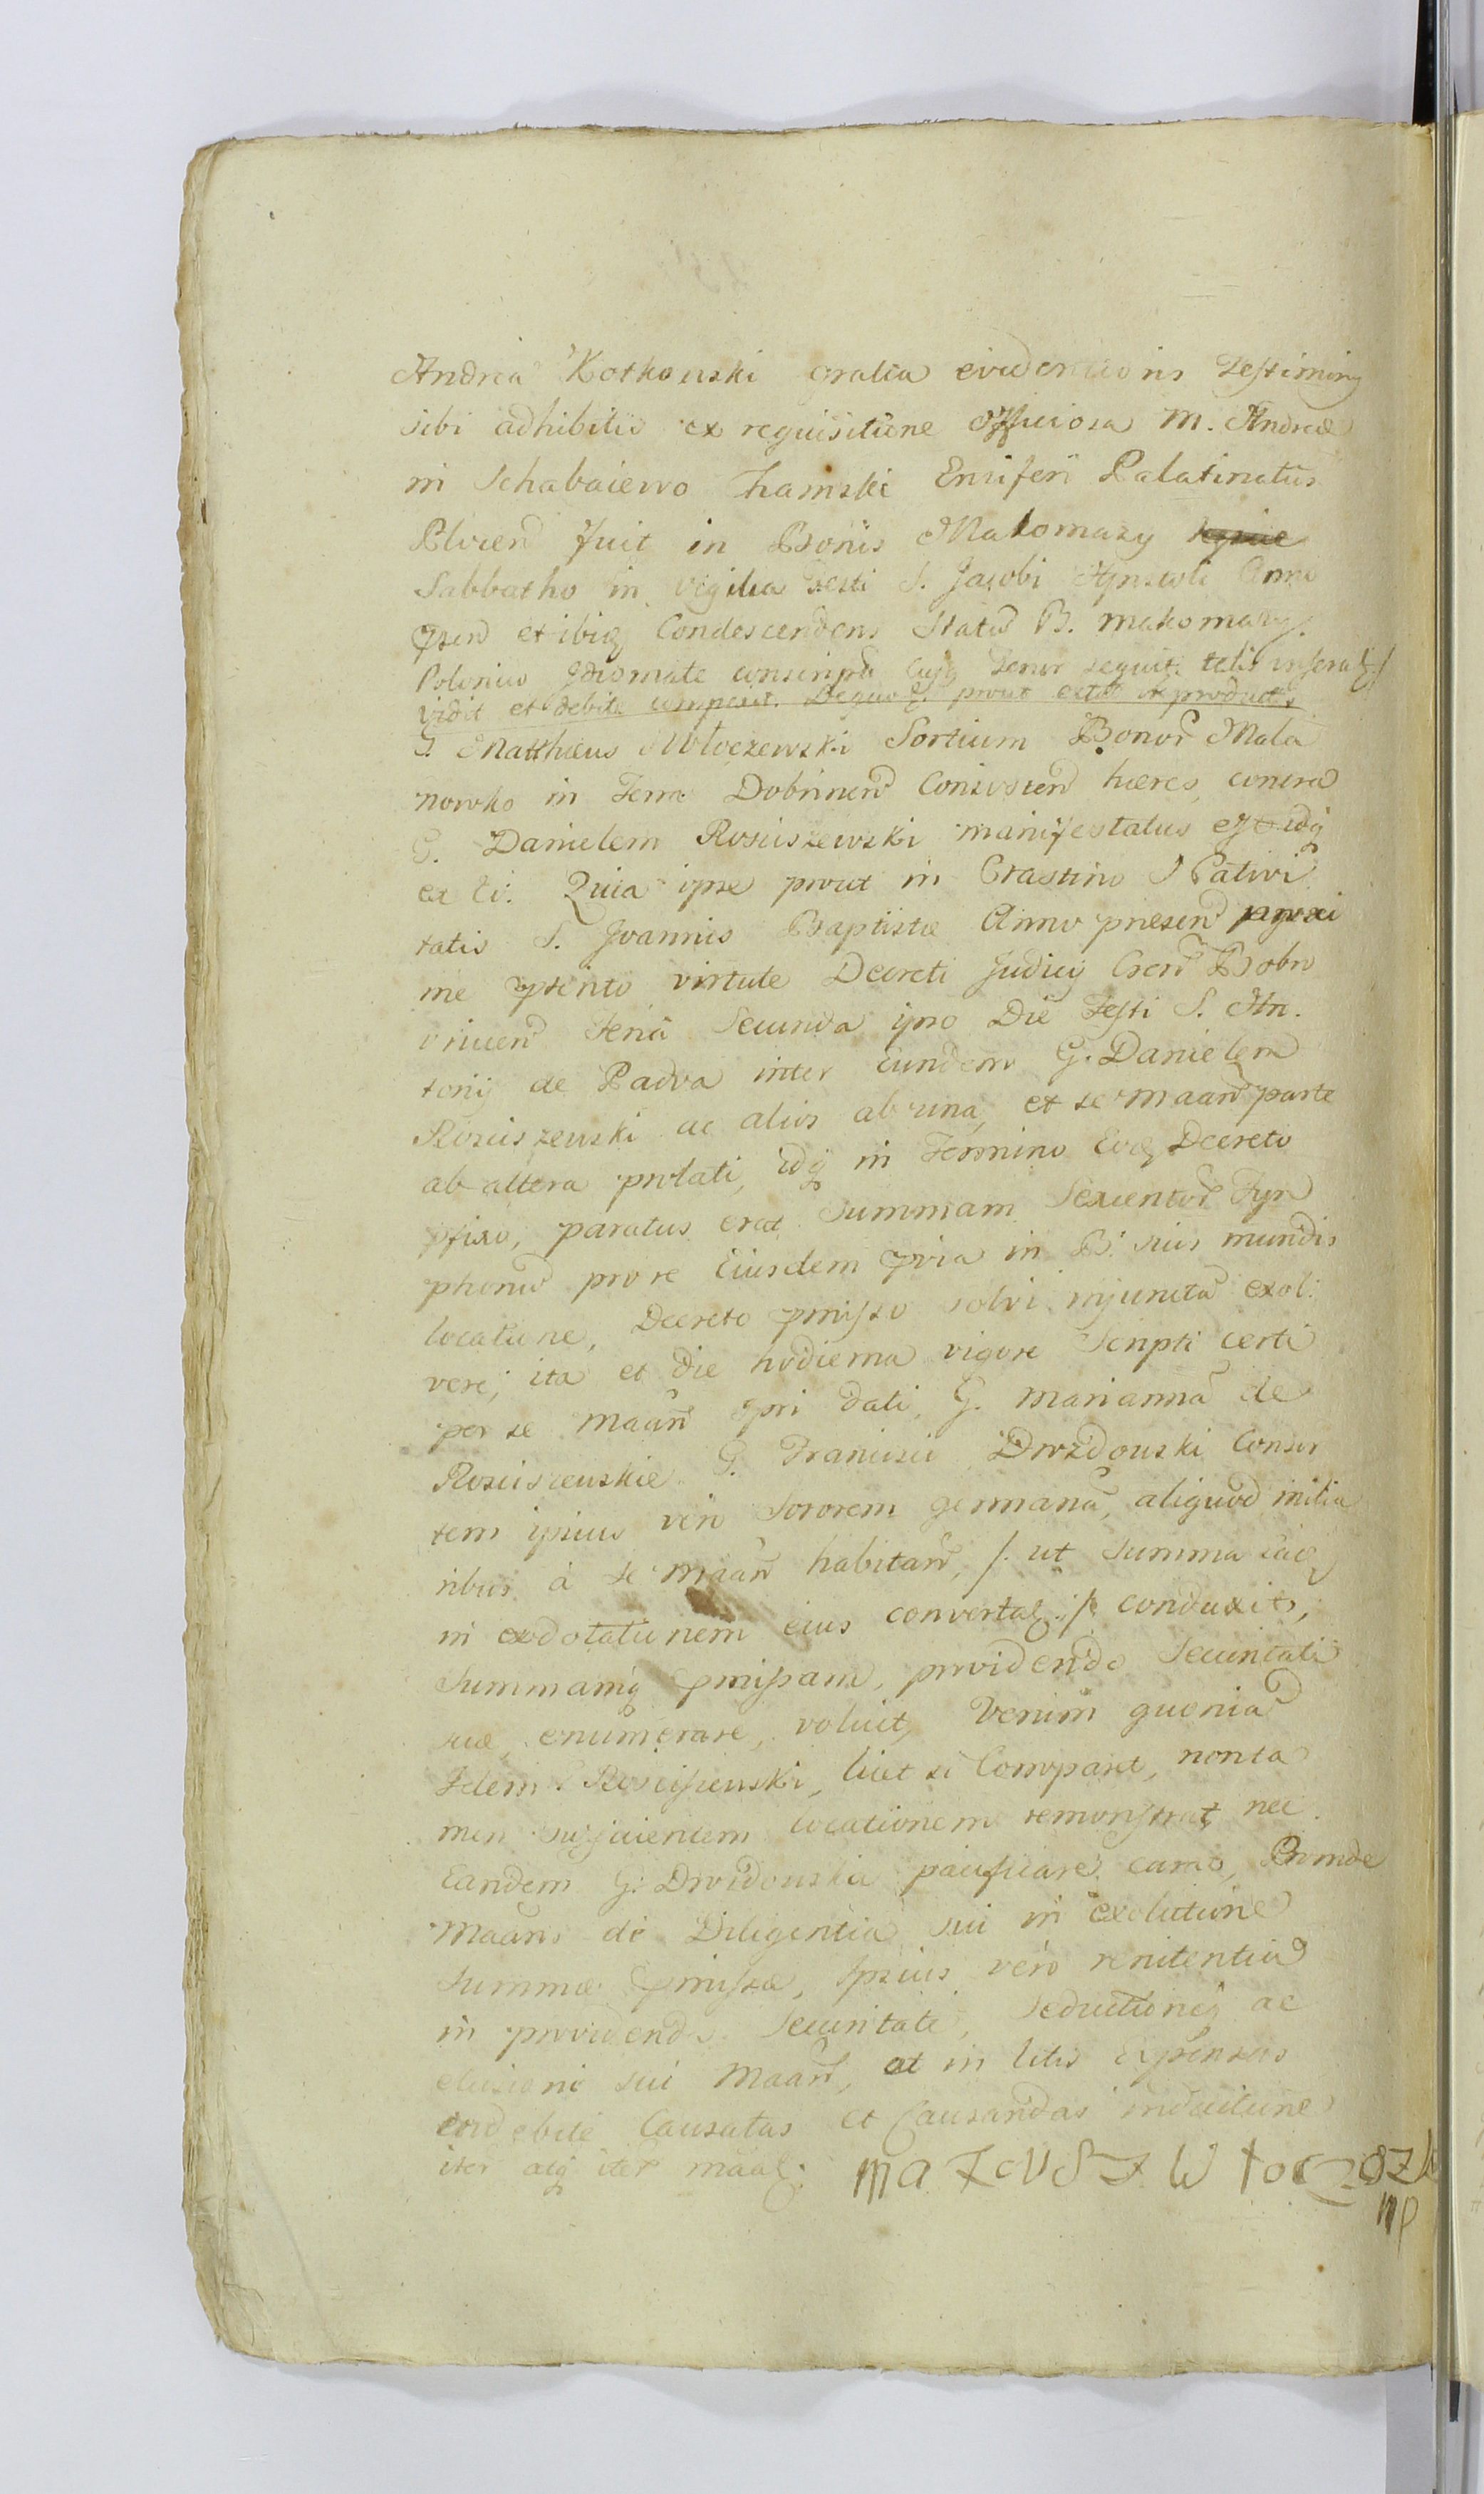 Andrea Kotkowski gratia evidentioris Testimony
sibi adhibitis ex requisitione officiosa M. Andreæ
in Schabaiewo Zhamski Ensiferi Palatinatus
Plocen fuit in Bonis Makomazy
Sabbatho in Vigilia Festi S. Jacobi Apostoli Anno
et ibiq Condescendens Statu B. makomazy
Polonico Jdiomate conscripta cujq tenor sequit. talis inserat
Vidit et debite comperit. De quo prout extat product
G. Matthæus Włoczewski Sortium Bonor Mala
nowko in Terra Dobrinen Consisten hæres, contra
G. Danielem Rosciszewski manifestatus est idq
et Ei. Quia ipse prout in Crastino Nativi
tatis S. Joannis Baptistæ Anno præsen proxi
me virtute Decreti Judicy Cren Dobr
Feria Secunda ipso Die Festi S. An.
tony de Padva inter eundem G. Danielem
Rosciszewski ac alios ab una, et se maan parte
ab altera prolati, idq in Termino Eoq Decreto
pfixo, paratus erat Summam Sexcentor Tyn
phonu pro re Eiusdem in B. suis mundis
locatione, Decreto pmisso solvi injuncta exol:
vere, ita et die hodierna vigore Scripti certi
per se maan Ipsi dati, G. marianna de
Rosciszewskie G. Francisci Drozdowski Consor
tem ipsius vero Sororem germana, aliquod milia
ribus à se maan habitan, /: ut Summa eaq
in exdotationem eius convertat :/ conduxit,
Summamq pmissam, providendo Securitati
suæ enumerare, voluit, Verum quonia
Idem G. Roscissewski, licet si Comparet, non ta
men sufficientem locationem remonstrat nec
Eandem G. Drozdowska pacificare curat, Proinde
maans de Diligentia sui in exolutione
Summæ pmissæ, Ipsius vero renitentia
in providenda Securitate, Seductioneq ac
elusione sui maan, ac in litis expensas
indebite Causatas et Causandas inductione
iter atq iter maat. MaTeUSZ WłoczeSZk
mp